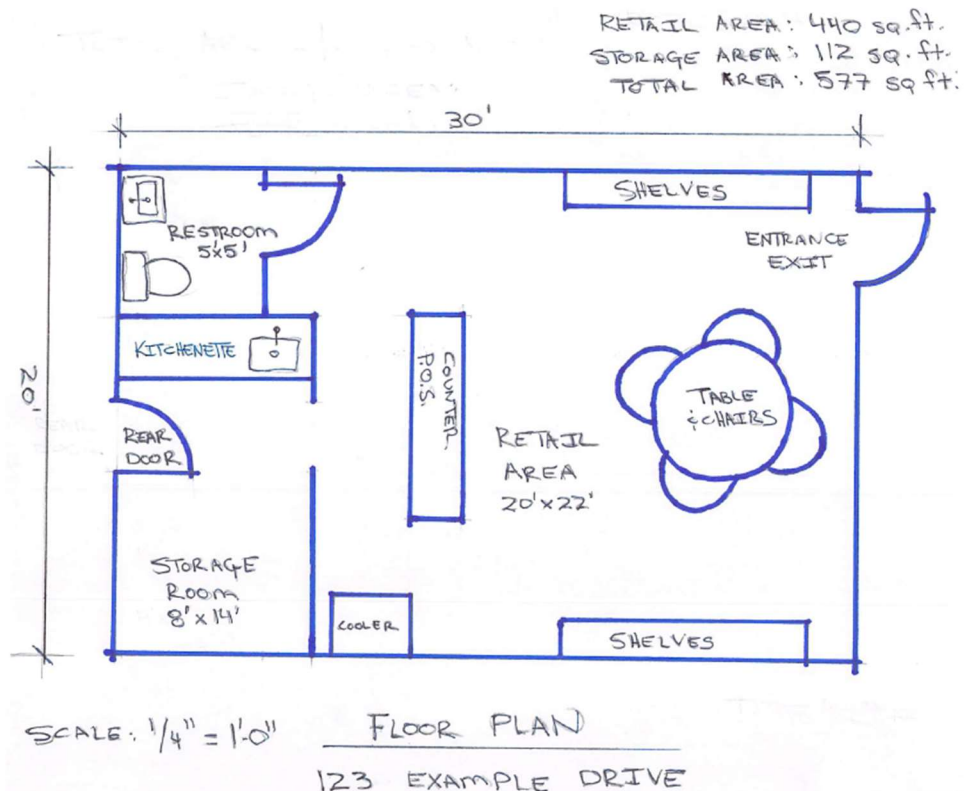 RETAIL AREA: 440 sq.ft.
STORAGE AREA: 112 sq.ft.
TOTAL AREA: 577 sq ft.
30'
20'
SHELVES
RESTROOM
5'x5'
ENTRANCE
EXIT
KITCHENETTE
COUNTER
P.O.S.
TABLE
& CHAIRS
REAR
DOOR
RETAIL
AREA
20'x22'
STORAGE
ROOM
8'x14'
COOLER
SHELVES
SCALE: 1/4" = 1'-0"
FLOOR PLAN
123 EXAMPLE DRIVE